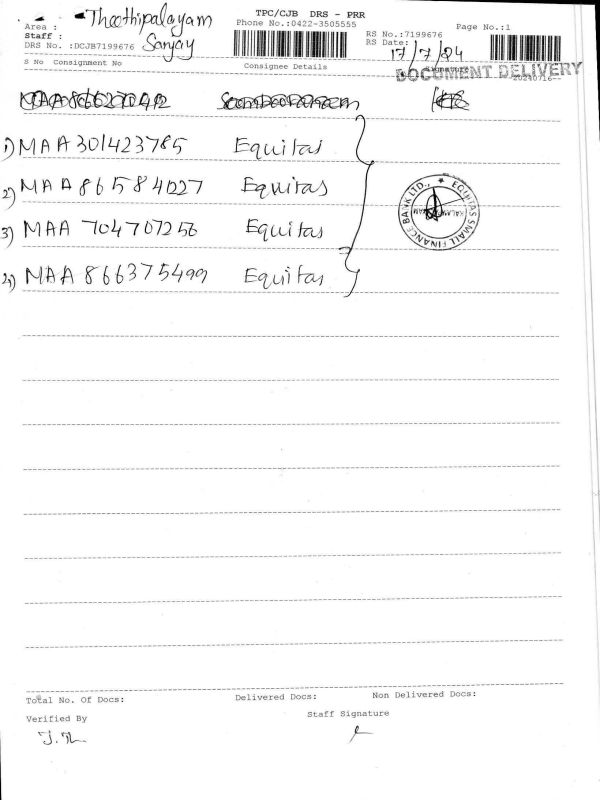 TPC/CJB DRS - PRR
Area : Theethipalayam
Phone No.:0422-3505555
Page No.:1
Staff : Sanjay
RS No.:7199676
DRS No. :DCJB7199676
RS Date: 17/7/24
S No Consignment No
Consignee Details
Signature
DOCUMENT DELIVERY
20240716
1) MAA301423785 Equitas
2) MAA865841227 Equitas
3) MAA 704707256 Equitas
4) MAA 866375499 Equitas
EQUITAS SMALL FINANCE BANK LTD.,
Total No. Of Docs:
Delivered Docs:
Non Delivered Docs:
Verified By
Staff Signature